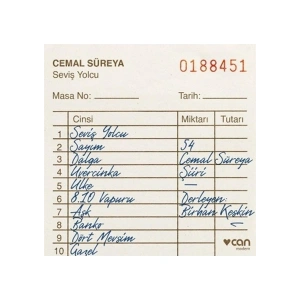 CEMAL SÜREYA
Seviş Yolcu
0188451
Masa No:
Tarih:
Cinsi Miktarı Tutarı
1 Seviş Yolcu
2 Sayım 54
3 Dalga Cemal Süreya
4 Üvercinka Şiiri
5 Ülke —
6 8.10 Vapuru Derleyen:
7 Aşk Birhan Keskin
8 Banko
9 Dört Mevsim
10 Gazel
can
modern